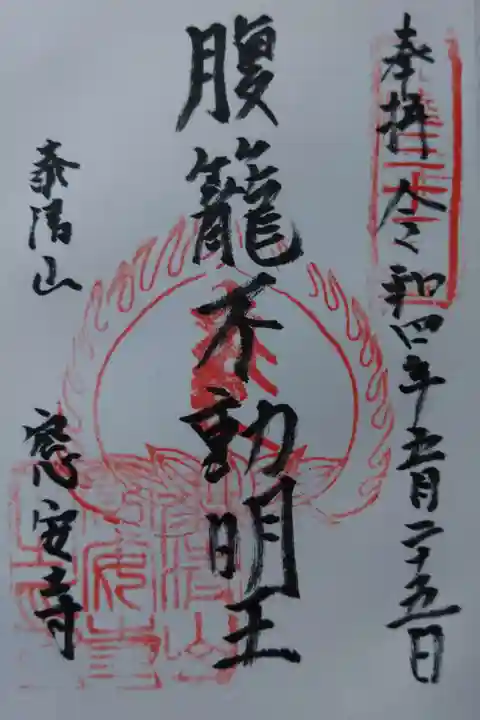 奉拝 令和四年五月二十五日
腹籠不動明王
泰清山
窓安寺